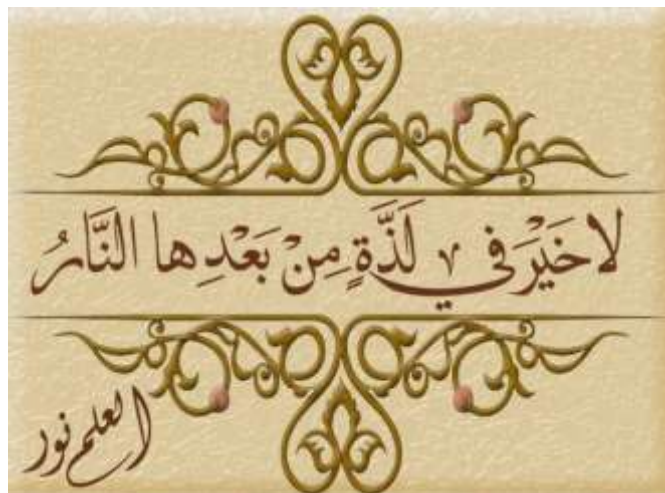 لا خَيْرَ في لَذَّةٍ مِنْ بَعْدِها النَّارُ
العلم نور